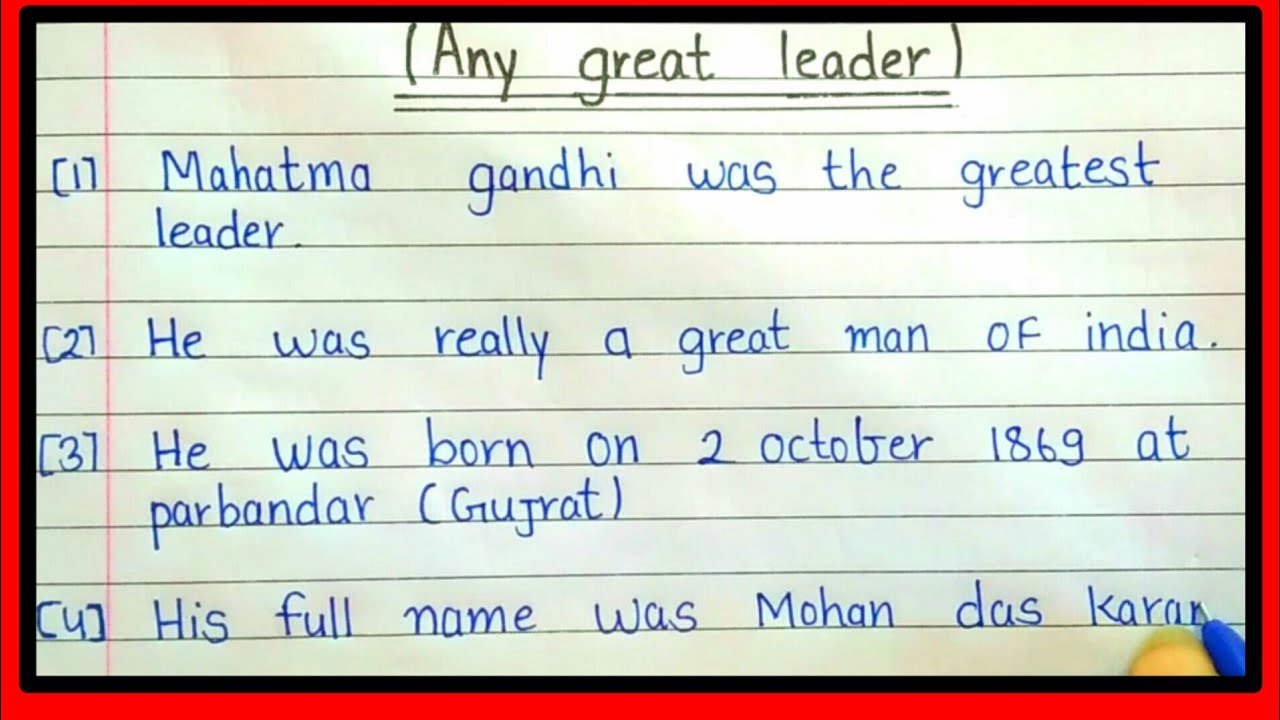 (Any great leader)
[1] Mahatma gandhi was the greatest
leader.
[2] He was really a great man OF india.
[3] He was born on 2 october 1869 at
parbandar (Gujrat)
[4] His full name was Mohan das karam